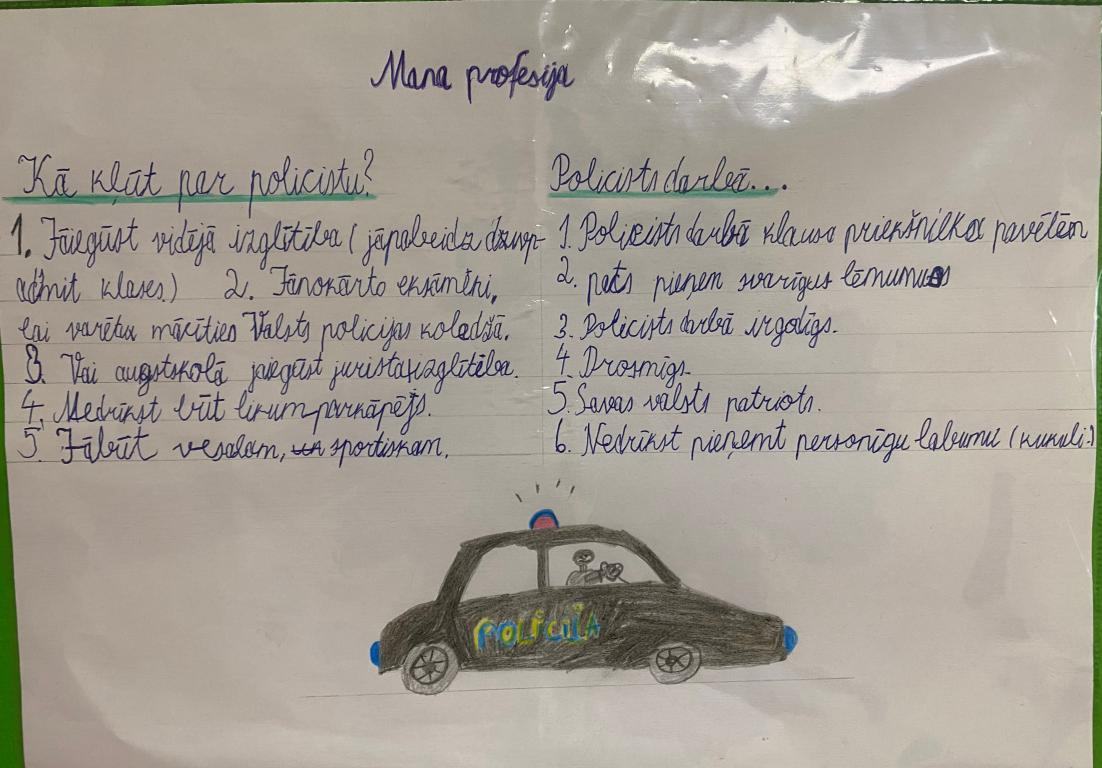 Mana profesija
Kā kļūt par policistu?
1. Jāiegūst vidējā izglītība (jāpabeidz divpa-
admit klases.) 2. Jānokārto eksāmeņi,
lai varētu mācīties Valsts policijas koledžā.
3. Vai augstskolā jaiegūst jurista izglītība.
4. Nedrīkst būt likumparkāpējs.
5. Jābūt veselam, un sportiskam.
Policists darbā...
1. Policists darbā klausa priekšnieka pavēlēm
2. pats pieņem svarīgus lēmumus
3. Policists darbā ir godīgs.
4. Drosmīgs.
5. Savas valsts patriots.
6. Nedrīkst pieņemt personīgu labumu (kukuli.)
POLICIJA